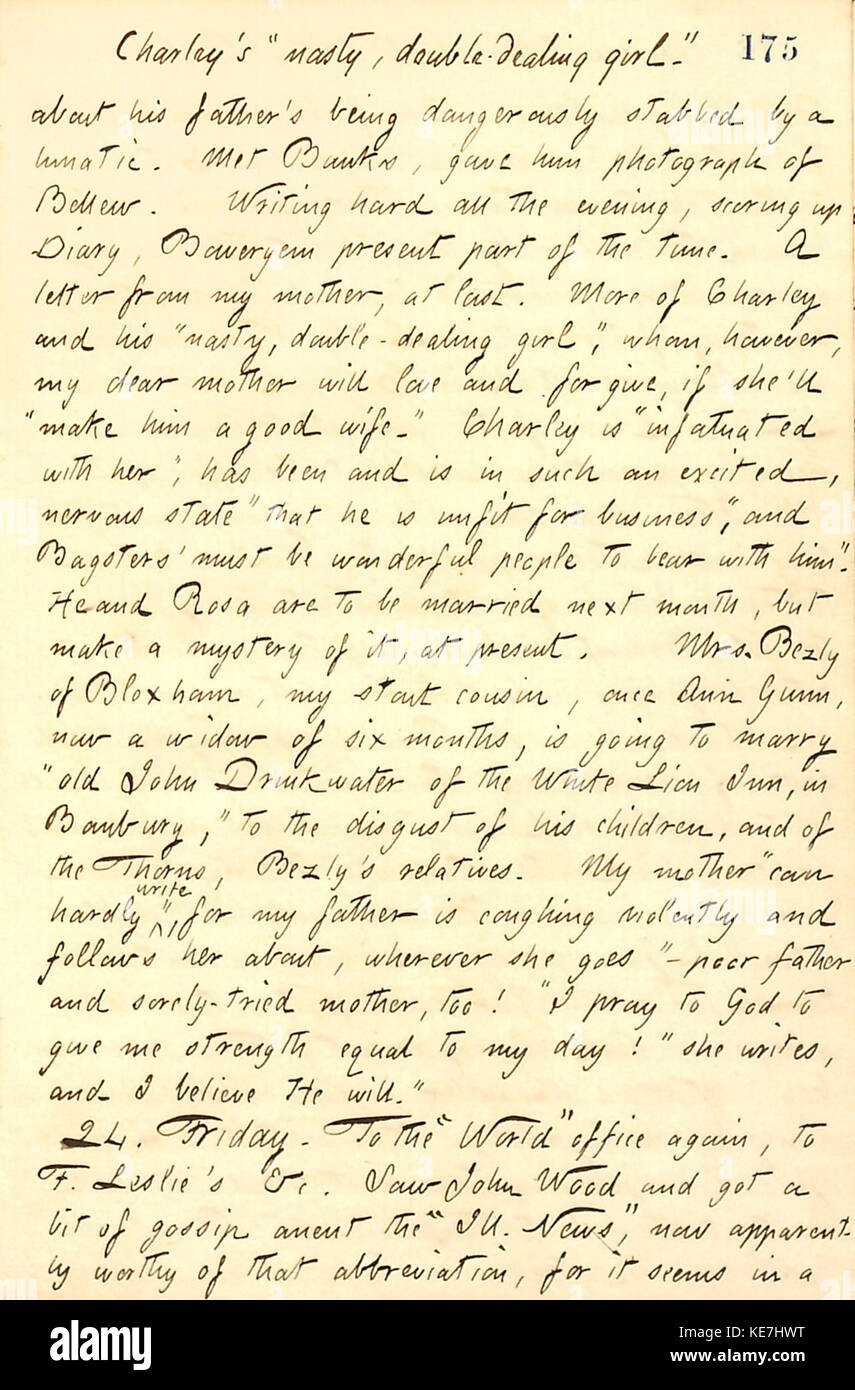 Charley's "nasty, double-dealing girl." 175
about his father's being dangerously stabbed by a
lunatic. Met Banks, gave him photograph of
Bellew. Writing hard all the evening, scoring up
Diary, Boweryem present part of the time. A
letter from my mother, at last. More of Charley
and his "nasty, double-dealing girl", whom, however,
my dear mother will love and forgive, if she'll
"make him a good wife." Charley is "infatuated
with her", has been and is in such an excited,
nervous state "that he is unfit for business", and
Bagsters' must be wonderful people to bear with him".
He and Rosa are to be married next month, but
make a mystery of it, at present. Mrs. Bezly
of Bloxham, my stout cousin, once Ann Gunn,
now a widow of six months, is going to marry
"old John Drinkwater of the White Lion Inn, in
Banbury," to the disgust of his children, and of
the Thorns, Bezly's relatives. My mother "can
hardly write", for my father is coughing violently and
follows her about, wherever she goes" - poor father
and sorely-tried mother, too! "I pray to God to
give me strength equal to my day!" she writes,
and I believe He will."
24. Friday. To the "World" office again, to
F. Leslie's &c. Saw John Wood and got a
bit of gossip anent the "Ill. News", now apparent-
ly worthy of that abbreviation, for it seems in a
alamy
Image ID: KE7HWT
www.alamy.com